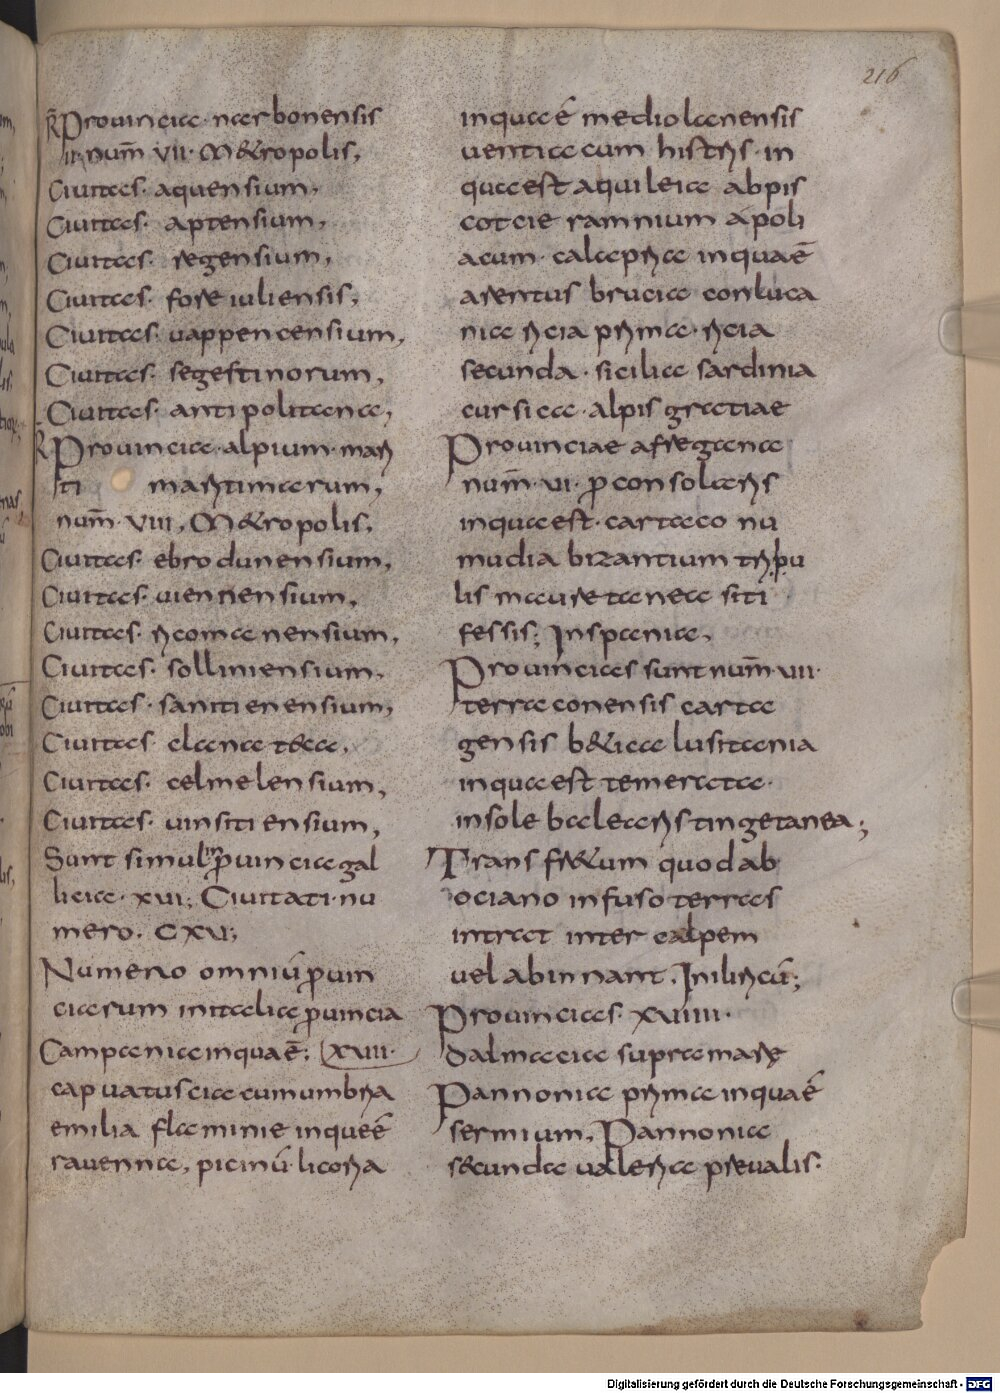 216
Prouinciae· narbonensis
ii· num̄ VII· Metropolis,
Ciuitas· aquensium,
Ciuitas· aptensium,
Ciuitas· regensium,
Ciuitas· foreiuliensis,
Ciuitas· uappencensium,
Ciuitas· segestinorum,
Ciuitas· antipolitana,
Prouincia· alpium· mari
ti maritimarum,
num̄· VIII, Metropolis,
Ciuitas· ebrodunensium,
Ciuitas· uiennensium,
Ciuitas· ricomanensium,
Ciuitas· solliniensium,
Ciuitas· sanitienensium,
Ciuitas· elcana
Ciuitas· celmelensium,
Ciuitas· uinsitiensium,
Sunt simul ꝓuinciae gal
liciae· xvi; Ciuitati· nu
mero· CXV;
Numero omniū ꝓuin
ciarum initaliae ꝓuincia
Campaniae inqua ē; xviii·
capuatusciae cumumbria
emilia flaminie inque ē
rauenna, picinū· licoria
inqua ē mediolanensis
uenticia cum histris· in
qua est aquileia abpis
cotcie ramnium apoli
acum· calapria inqua ē
arentus brucia conluca
nia ricia prima· ricia
secunda· siciliae sardinia
cursica· alpis gratiae
Prouinciae afregana
num̄· vi· ꝓconsolaris
inqua est· cartaco nu
mudia bizantium tripu
lis mauretanea siti
fessis; Inspania,
Prouincias sunt num̄· vii·
terraconensis carta
gensis betica lusitania
inqua est temerata·
insole balearis tingetanea;
Trans fretum quod ab
ociano infuso terras
intrat inter calpem
uel abinnant, Iniliricū;
Prouincias· xviiii·
dalmacia supra mare
Pannonia prima inqua ē
sermium, Pannonia
secunda ualeria preualis·
Digitalisierung gefördert durch die Deutsche Forschungsgemeinschaft - DFG